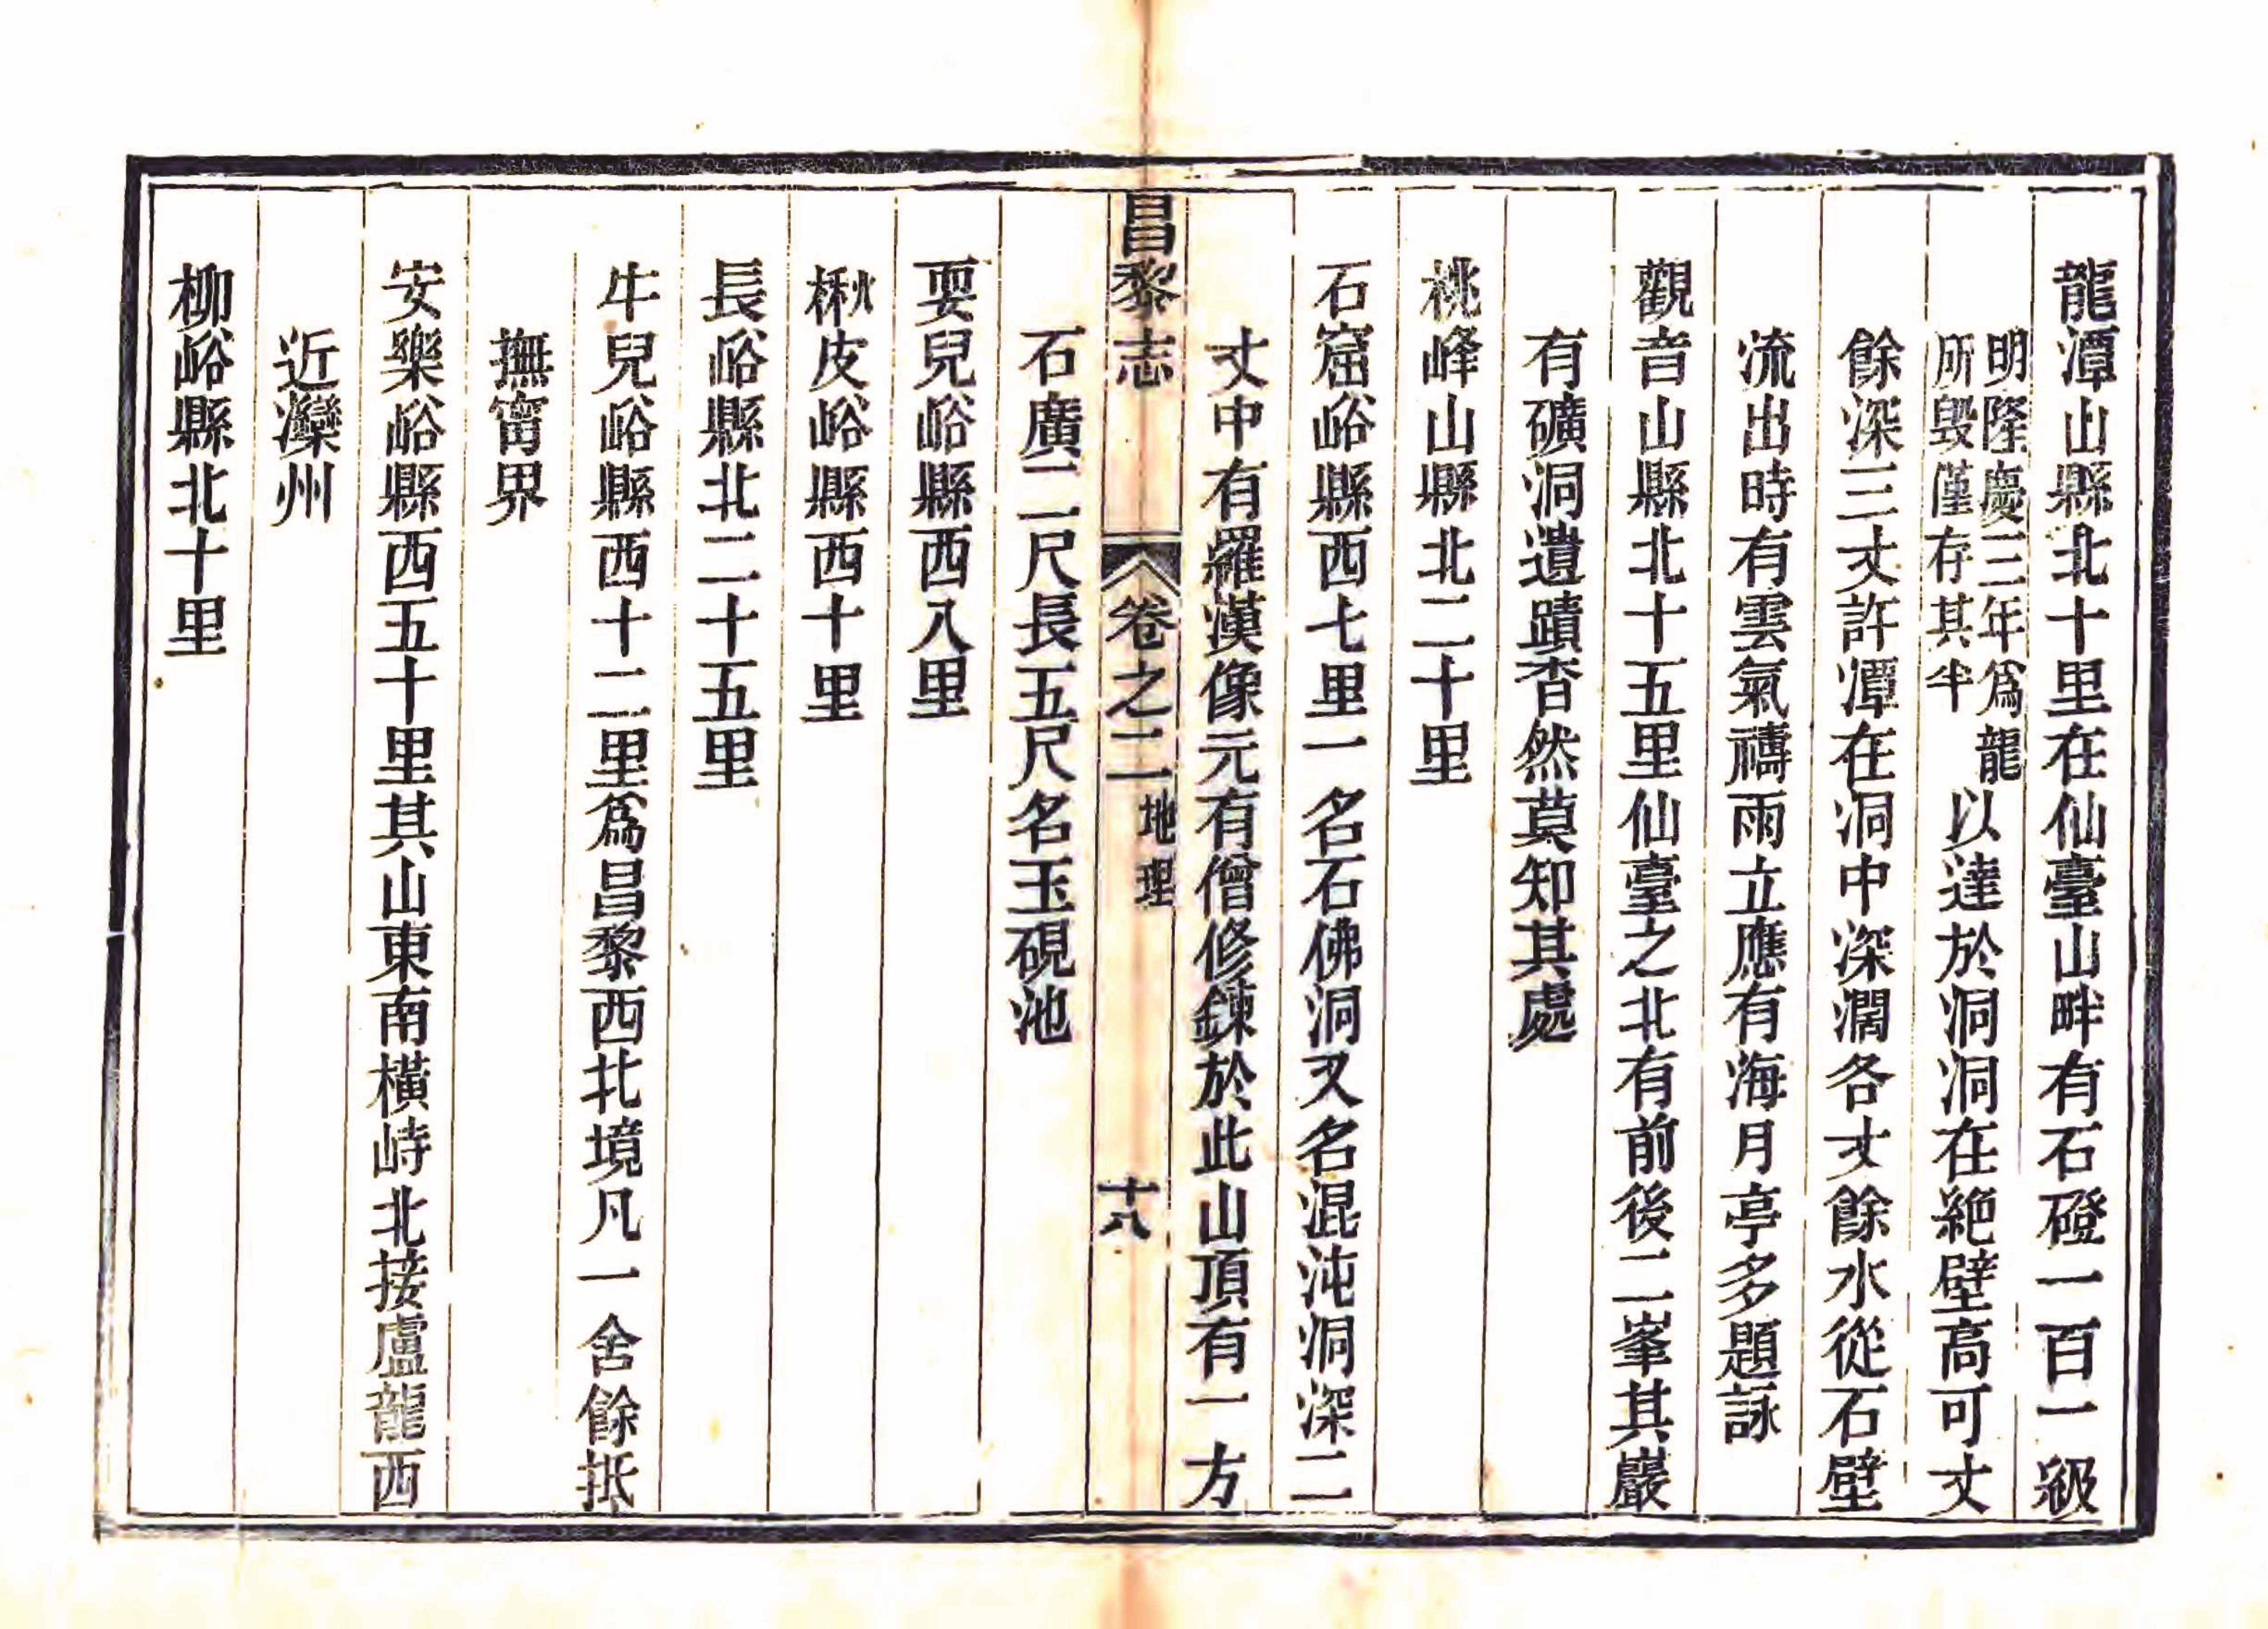 龍潭山縣北十里在仙臺山畔有石磴一百一級
明隆慶三年爲龍
所毀僅存其半
以達於洞洞在絶壁高可丈
餘深三丈許潭在洞中深濶各丈餘水從石壁
流出時有雲氣禱雨立應有海月亭多題詠
觀音山縣北十五里仙臺之北有前後二峯其巖
有礦洞遺蹟杳然莫知其處
桃峰山縣北二十里
石窟峪縣西七里一名石佛洞又名混沌洞深二
丈中有羅漢像元有僧修鍊於此山頂有一方
昌黎志
卷之二
地理
十八
石廣二尺長五尺名玉硯池
耍兒峪縣西八里
楸皮峪縣西十里
長峪縣北二十五里
牛兒峪縣西十二里爲昌黎西北境凡一舍餘抵
撫甯界
安樂峪縣西五十里其山東南橫峙北接盧龍西
近灤州
柳峪縣北十里